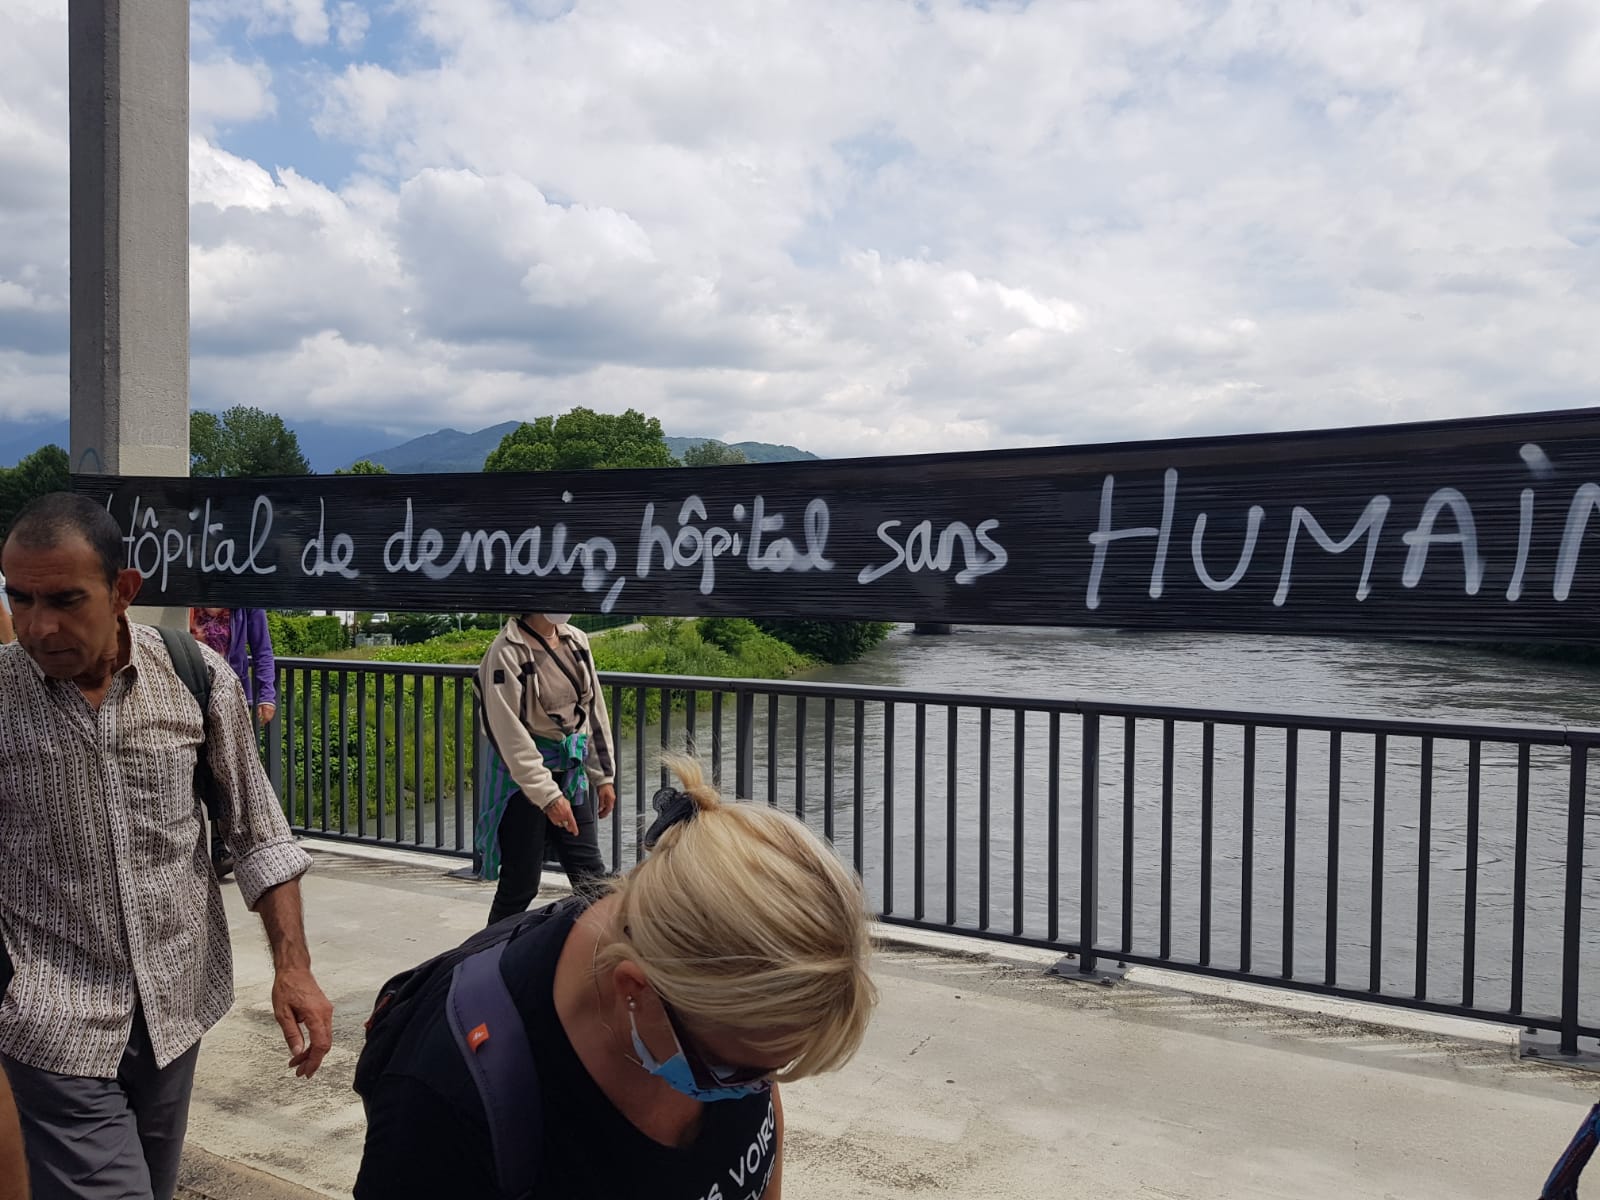 Hôpital de demain, hôpital sans HUMAIN
VOIRO